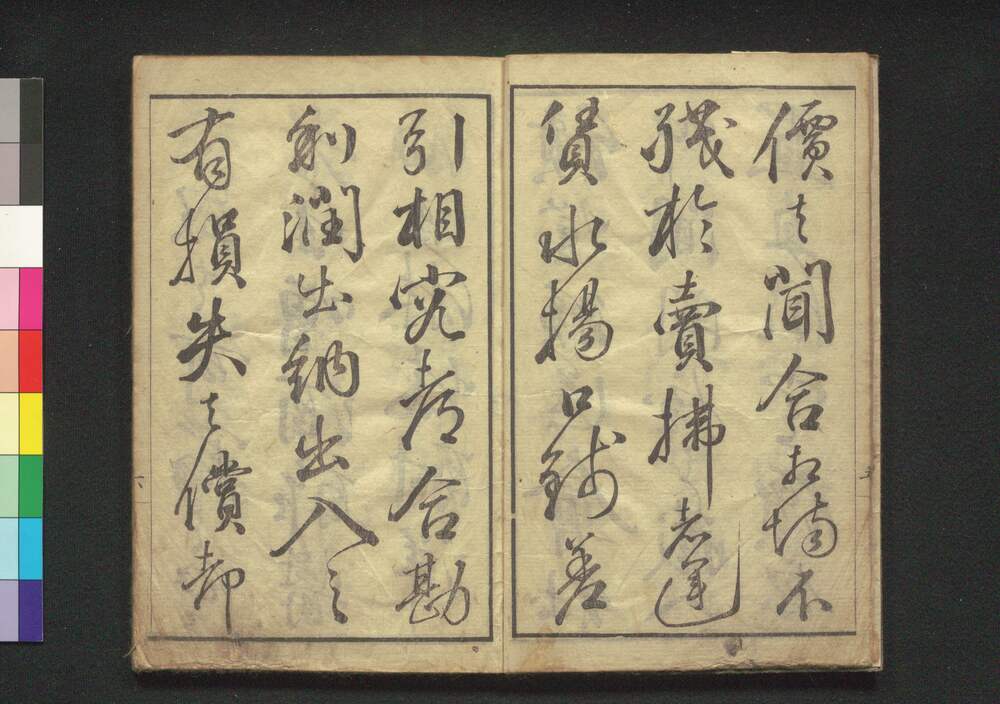 價者聞合相場不
殘於賣拂者運
賃水揚口銭差
引相究都合勘
利潤出納出入之
有損失者償却